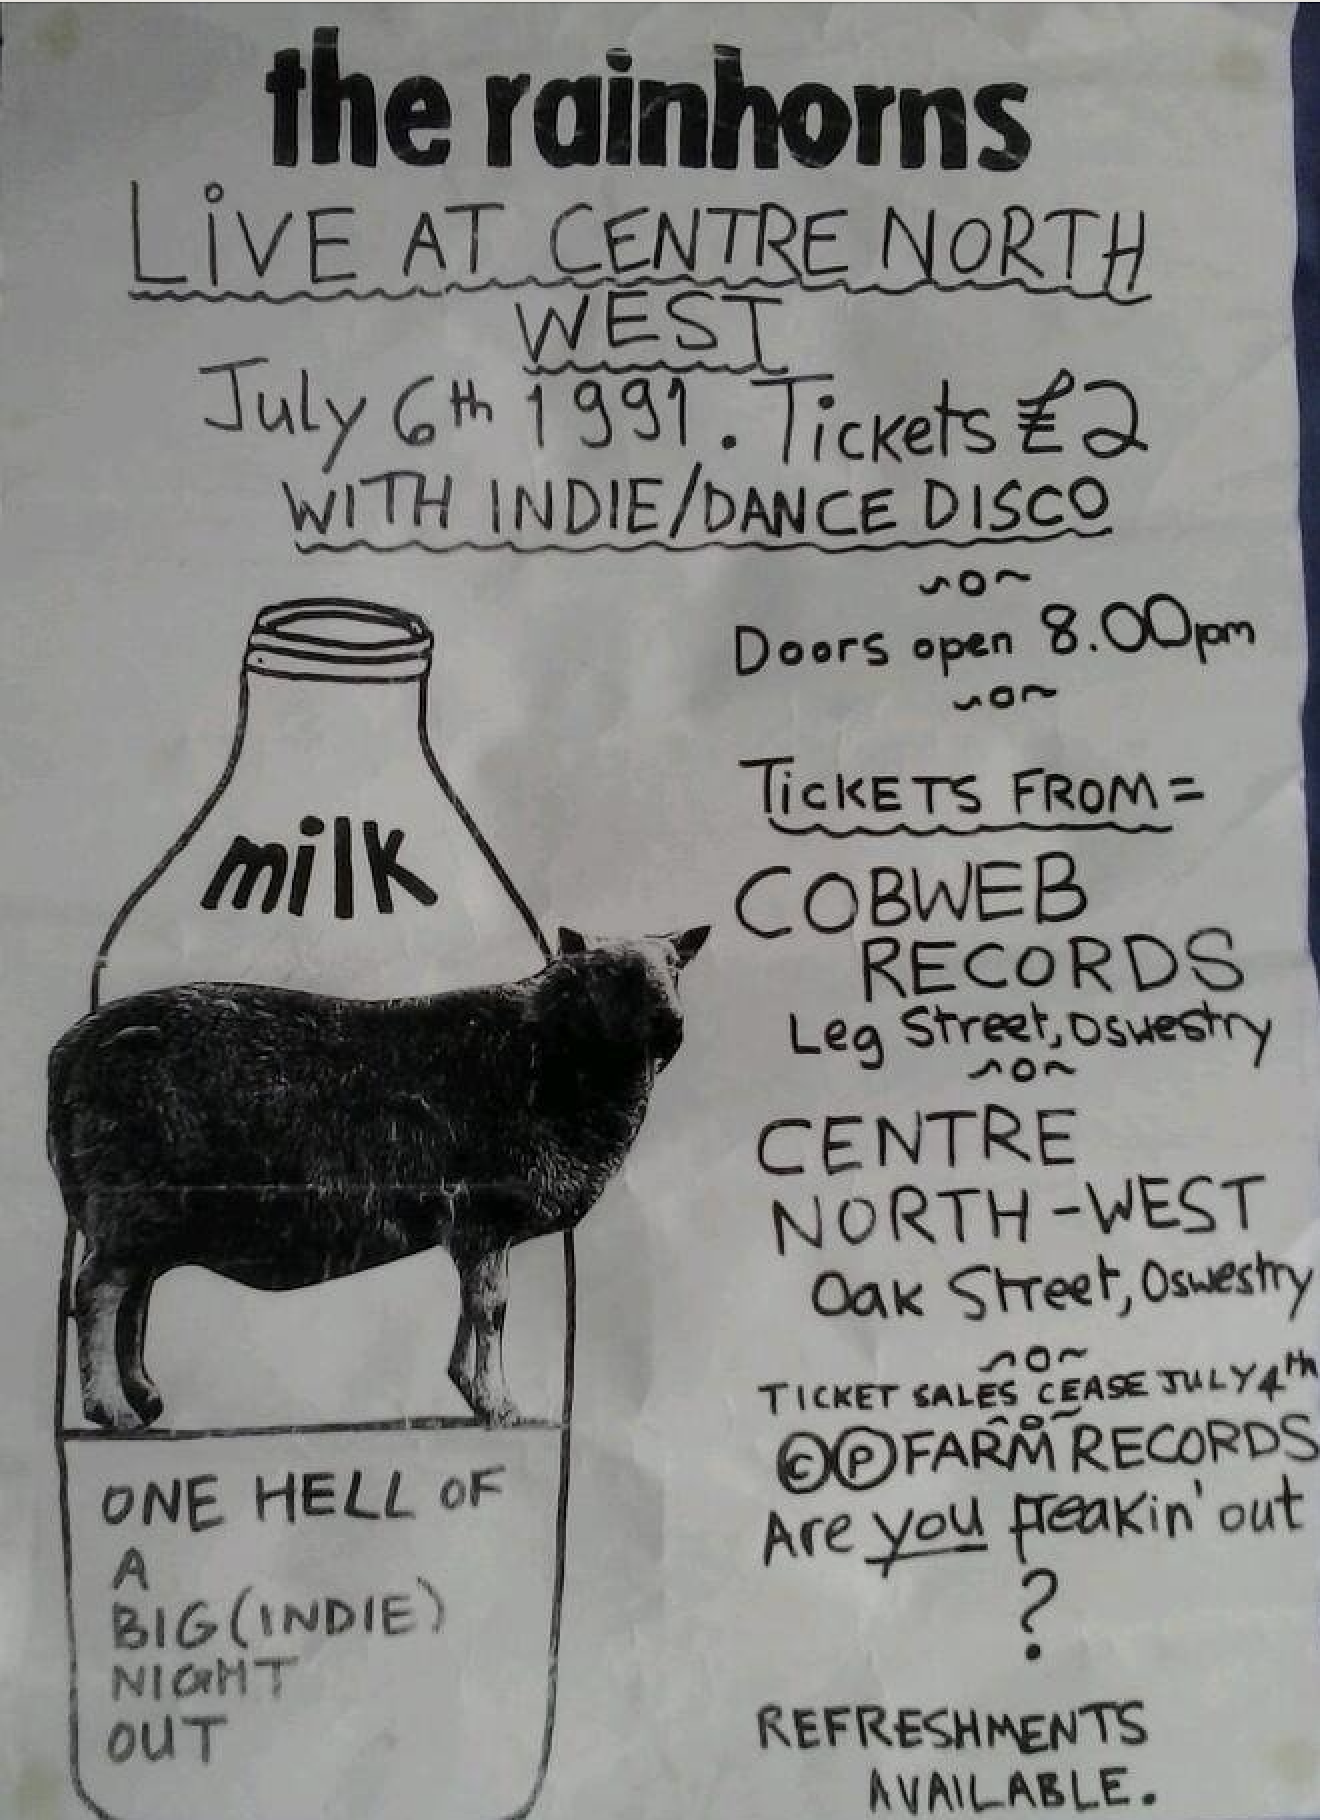 the rainhorns
LiVE AT CENTRE NORTH
WEST
July 6th 1991. Tickets £2
WITH INDIE/DANCE DISCO
Doors open 8.00pm
TiCKETS FROM=
COBWEB
RECORDS
Leg Street, Oswestry
CENTRE
NORTH-WEST
Oak Street, Oswestry
TICKET SALES CEASE JULY 4th
©℗ FARM RECORDS
Are you freakin' out
?
REFRESHMENTS
AVAILABLE.
milk
ONE HELL OF
A
BIG (INDIE)
NIGHT
OUT